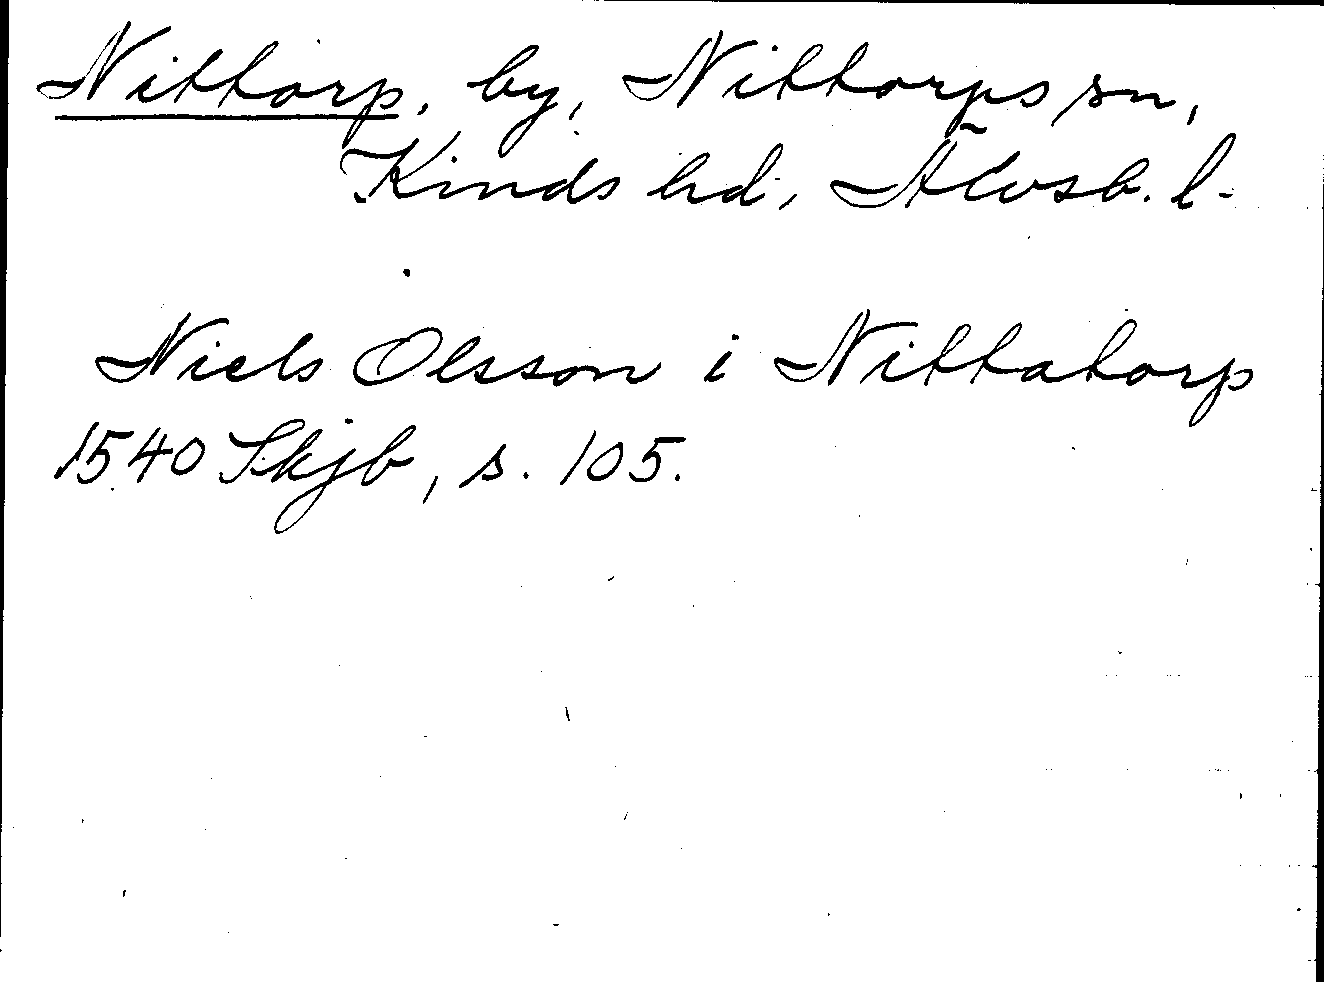 Nittorp, by, Nittorps sn,
Kinds hd, Älvsb. l.
Niels Olsson i Nittatorp
1540 Skjb, s. 105.